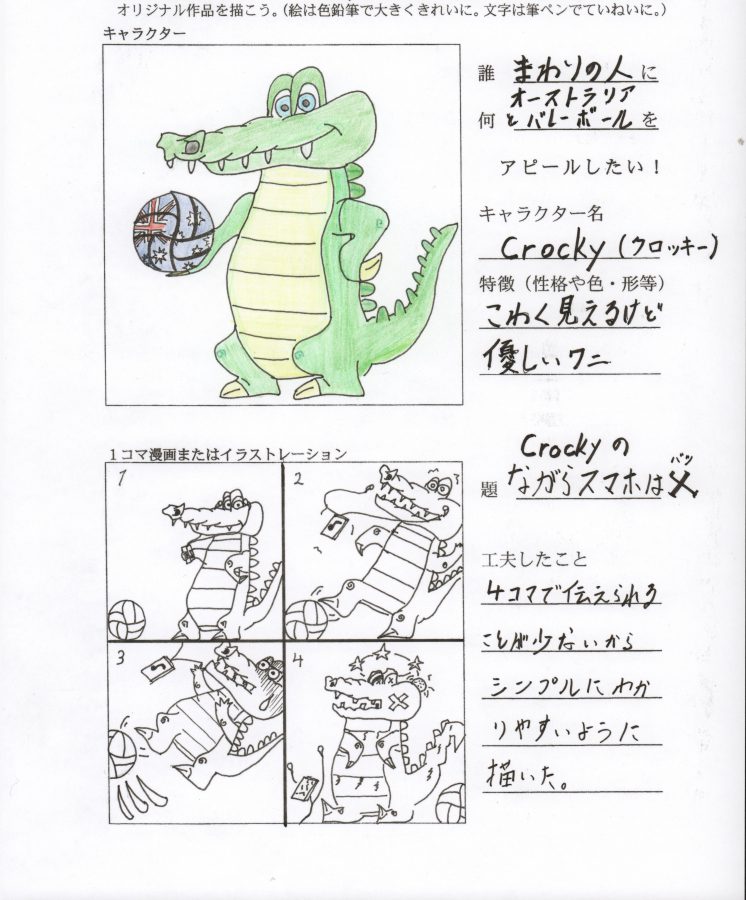 オリジナル作品を描こう。（絵は色鉛筆で大きくきれいに。文字は筆ペンでていねいに。）
キャラクター
誰 まわりの人 に
オーストラリア
何 とバレーボール を
アピールしたい！
キャラクター名
Crocky (クロッキー)
特徴（性格や色・形等）
こわく見えるけど
優しいワニ
１コマ漫画またはイラストレーション
1
2
3
4
Crockyの
バツ
題 ながらスマホは×
工夫したこと
4コマで伝えられる
ことが少ないから
シンプルにわか
りやすいように
描いた。